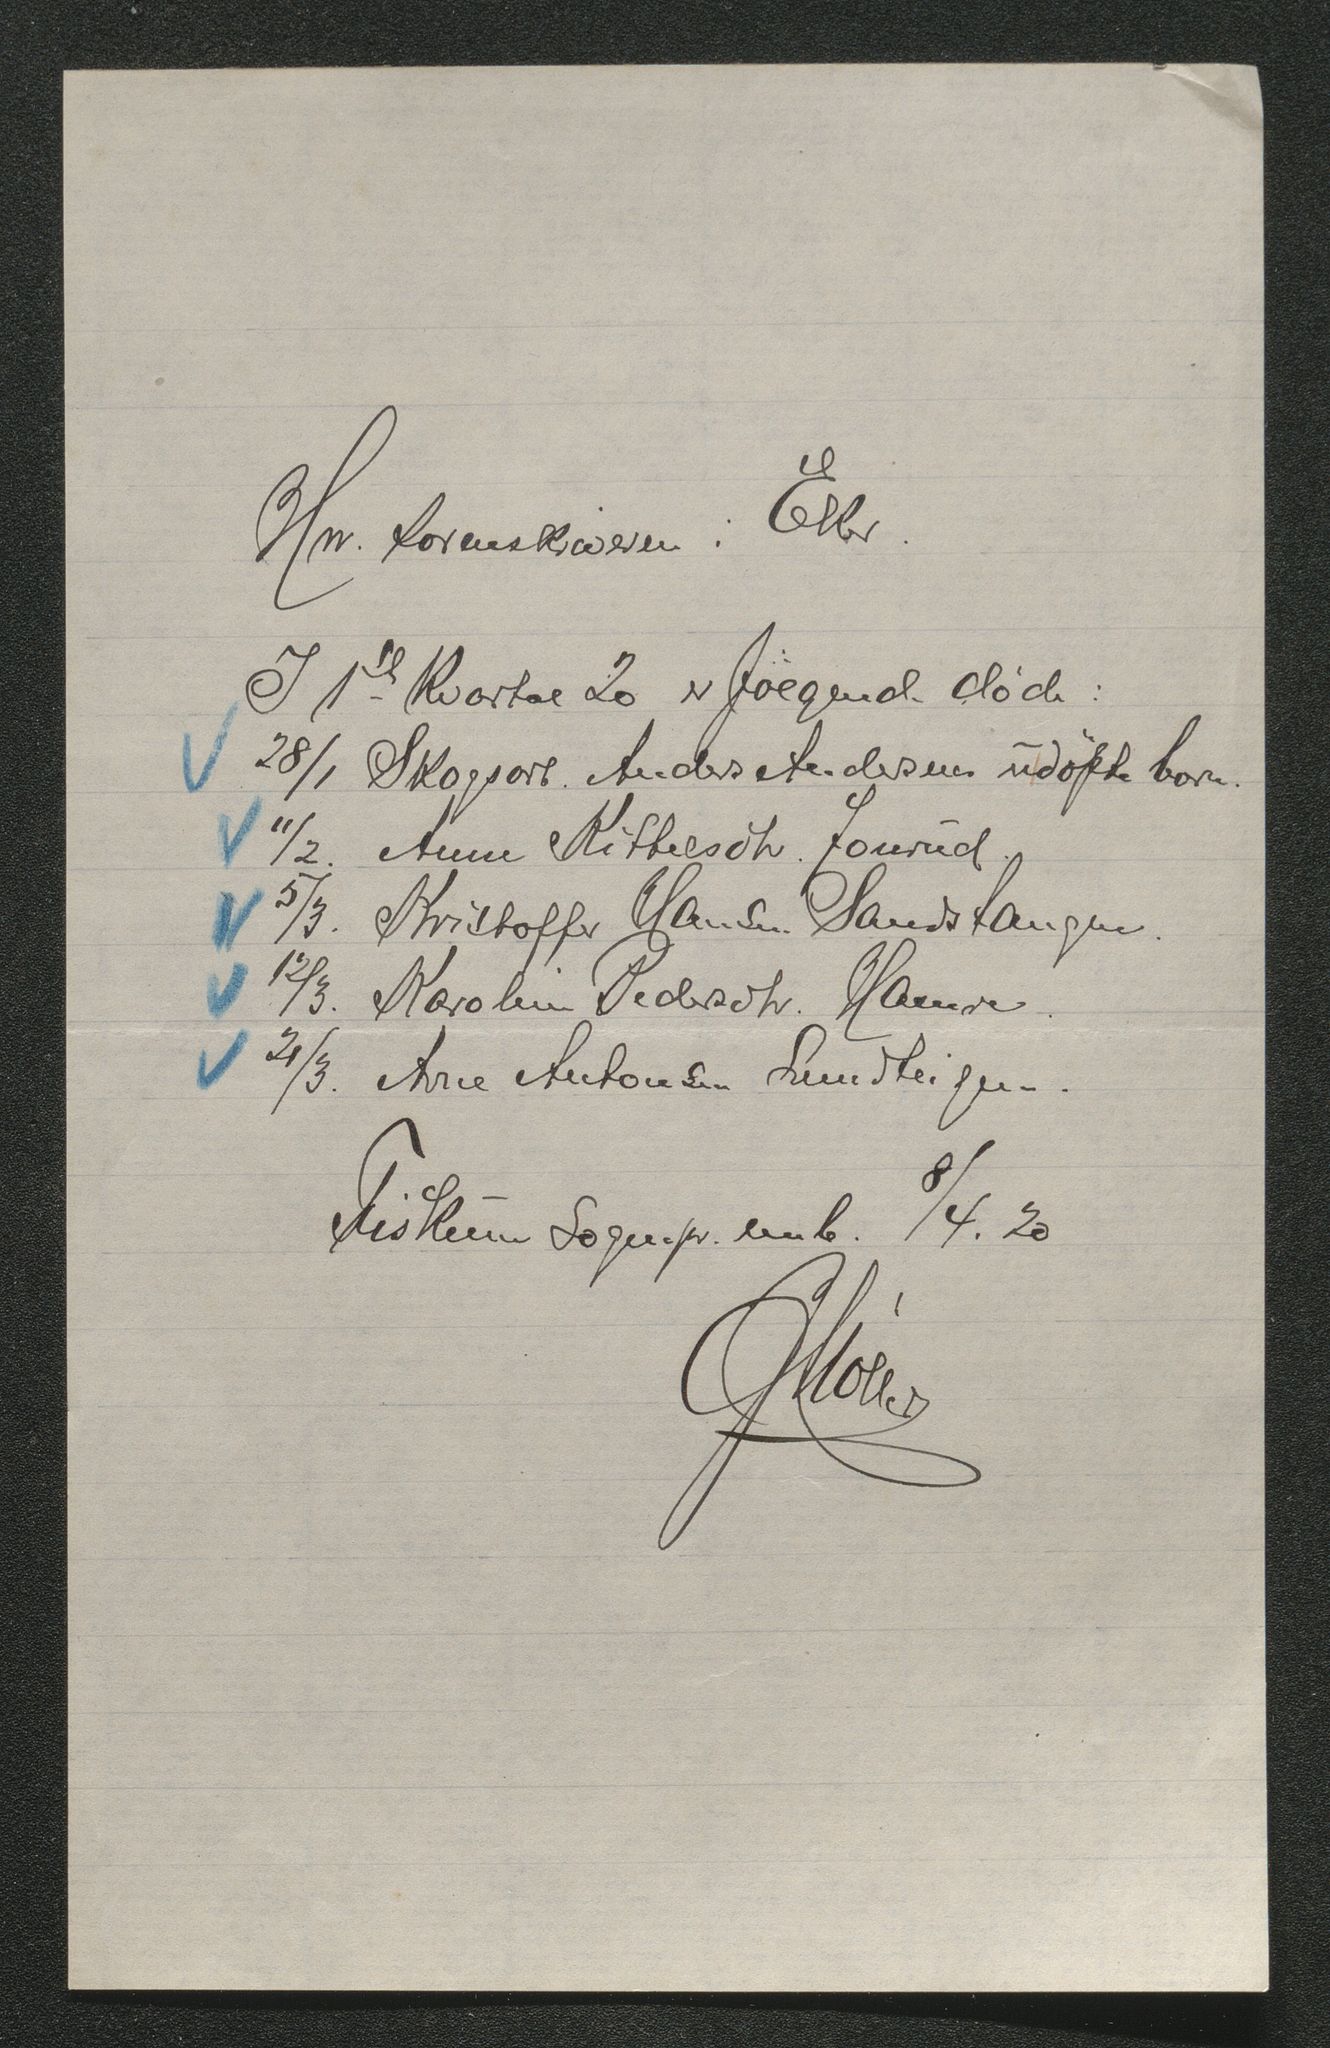 Hr. sorenskriveren i Eker.
I 1ste Kvartal 20 er følgende døde:
28/1 Skogsarb. Anders Andersens udøpte barn.
11/2. Anne Kittelsdtr.
5/3. Kristoffer Hansen Sandstangen.
12/3. Karoline Pedersdtr. Hamre.
21/3. Arne Antonsen Sundteigen.
Fiskum Sognepr. emb. 8/4. 20
Möller